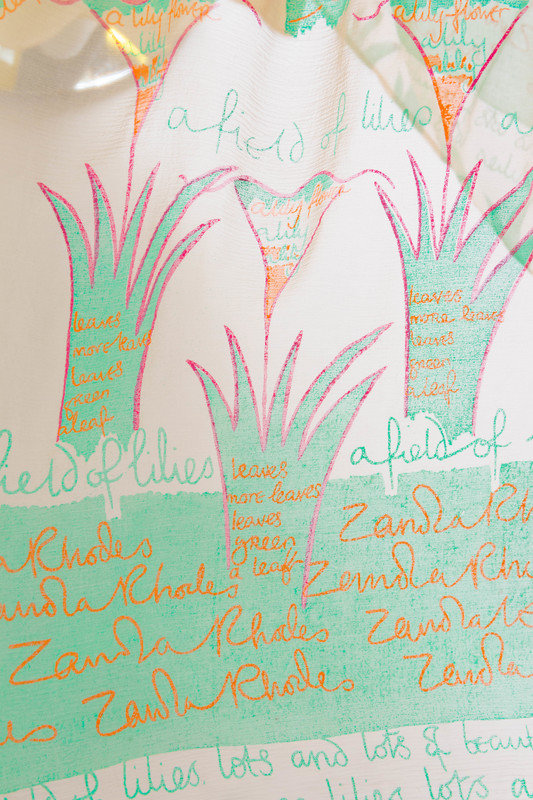 a lily flower
a lily
a lily flower
a lily
a field of lilies
a
a lily flower
a lily
leaves
more leaves
leaves
green
a leaf
leaves
more leaves
leaves
green
a leaf
field of lilies
a field of
leaves
more leaves
leaves
green
a leaf
a Rhodes
Zandra Rh
andra Rhodes
Zandra Rho
Zandra Rhodes
Zandra R
es Zandra Rhodes
Zandra
d of lilies lots and lots of beaut
lilies lots a